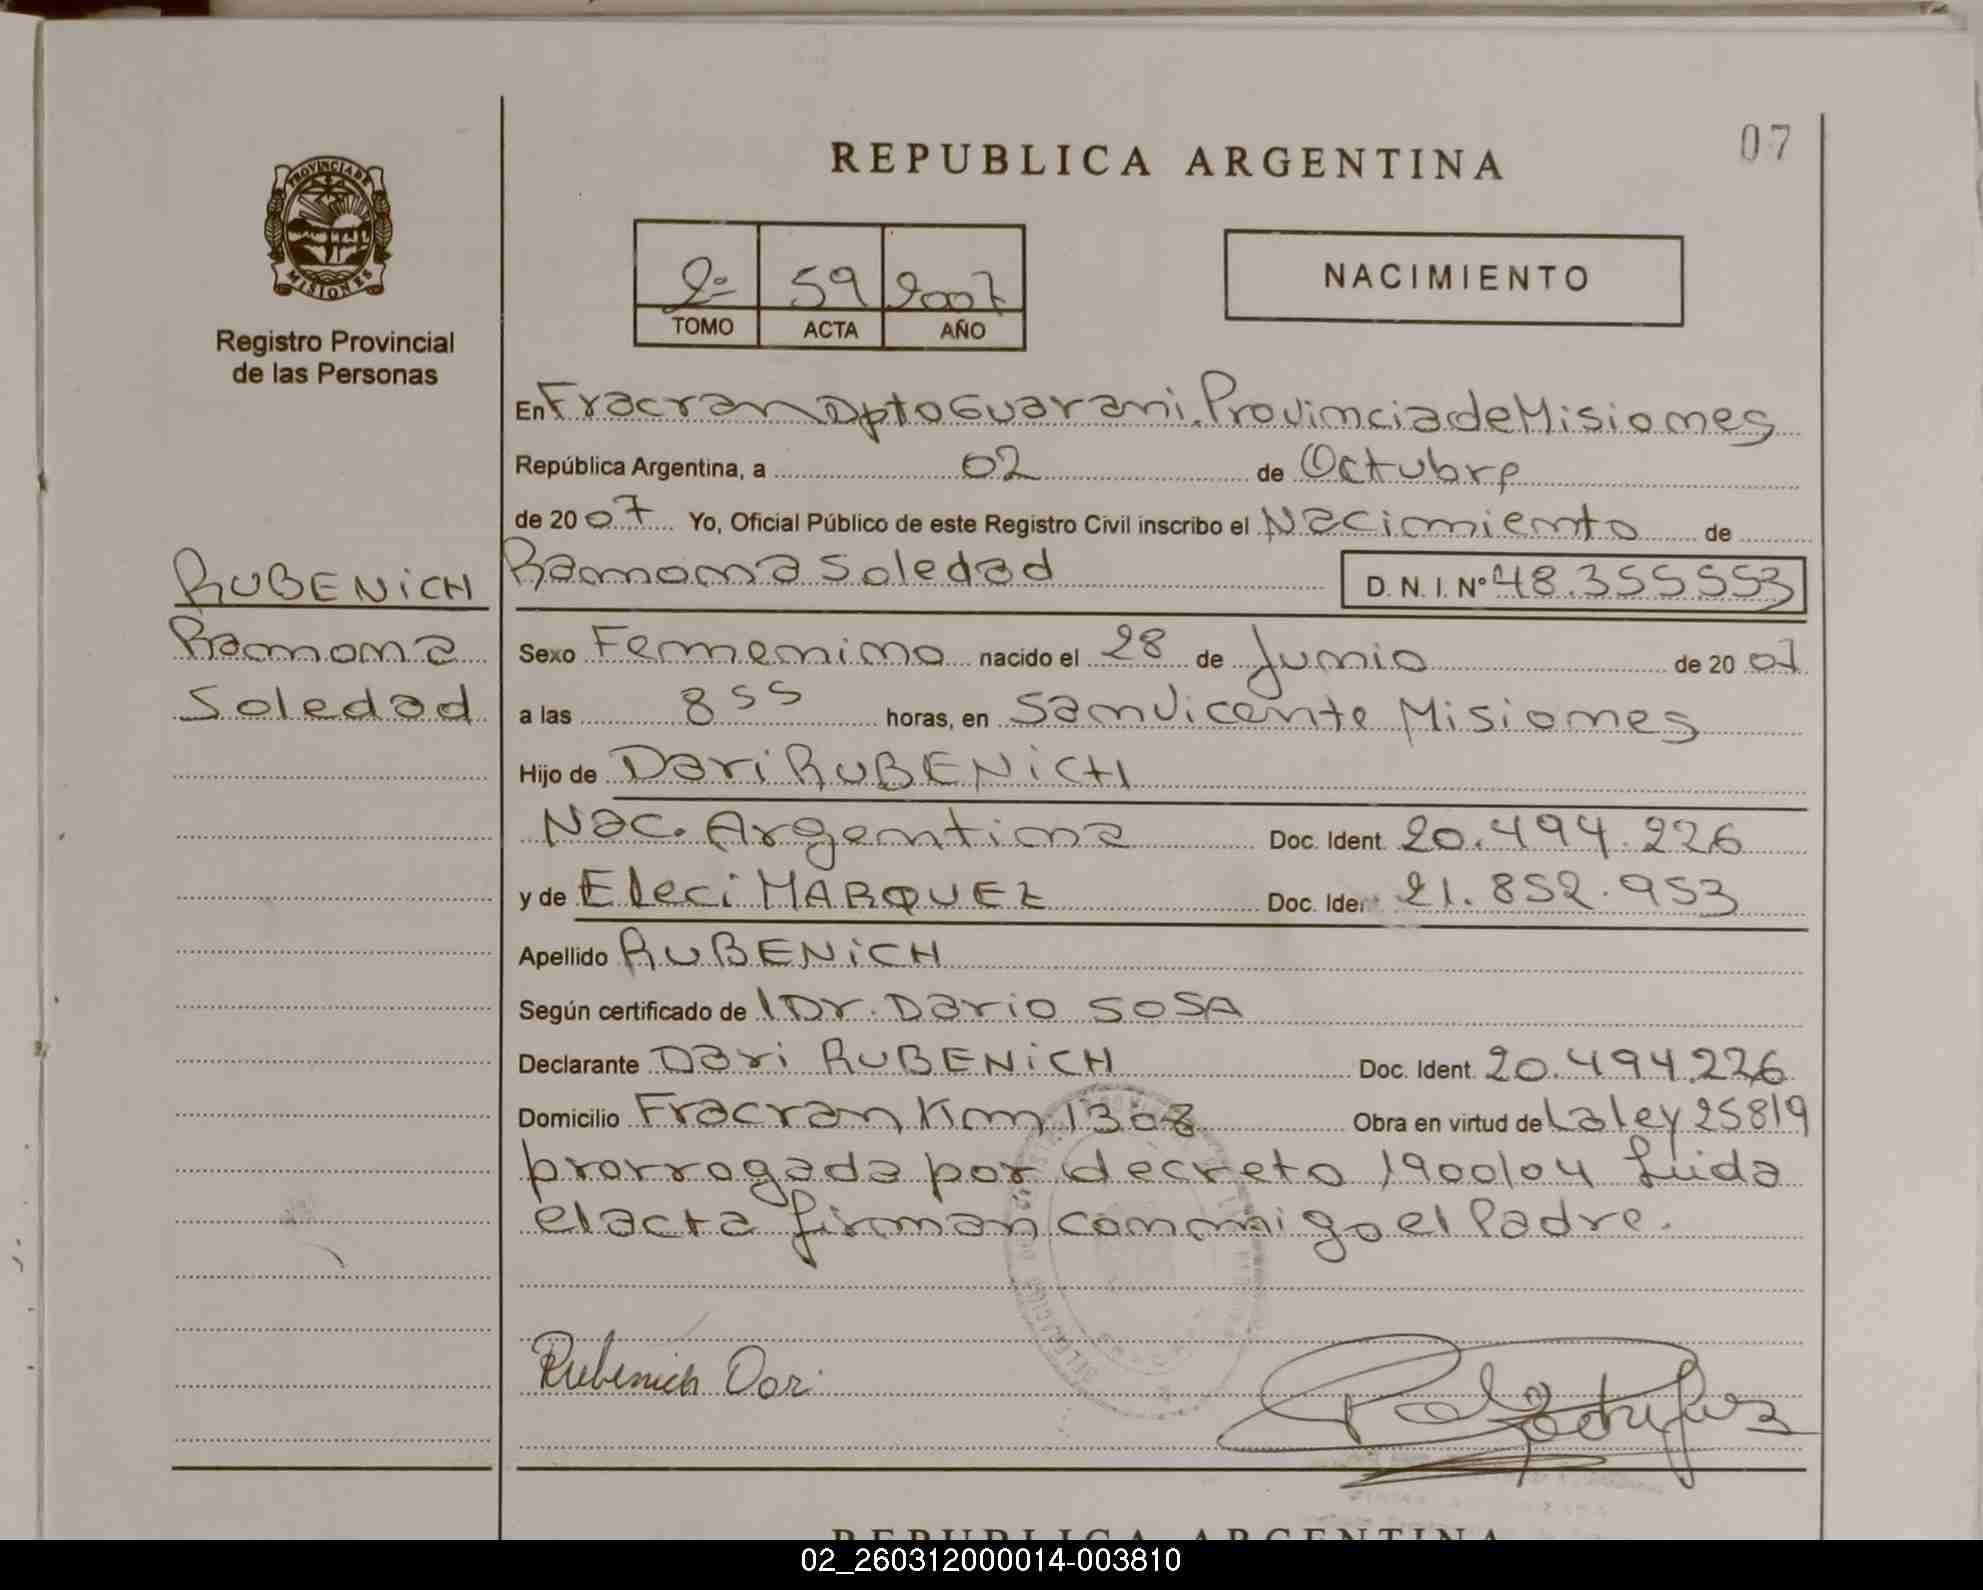 07
REPUBLICA ARGENTINA
PROVINCIA DE
MISIONES
Registro Provincial
de las Personas
2º 59 2007
TOMO ACTA AÑO
NACIMIENTO
En Fracran Dpto Guarani. Provincia de Misiones
República Argentina, a 02 de Octubre
de 2007 Yo, Oficial Público de este Registro Civil inscribo el Nacimiento de
RUBENiCH
Ramona
Soledad
Ramona Soledad D. N. I. Nº 48.355553
Sexo Femenino nacido el 28 de Junio de 2007
a las 8 55 horas, en San Vicente Misiones
Hijo de Dari RUBENiCH
Nac. Argentina Doc. Ident. 20.494.226
y de Eleci MARQUEZ Doc. Ident 21.852.953
Apellido RUBENiCH
Según certificado de l Dr. Dario SOSA
Declarante Dari RUBENiCH Doc. Ident. 20.494.226
Domicilio Fracran Km 1308 Obra en virtud de La ley 25819
prorrogada por decreto 1900/04 Leida
el acta firman conmigo el Padre.
Rubenich Dari
REPUBLICA ARGENTINA
02_260312000014-003810